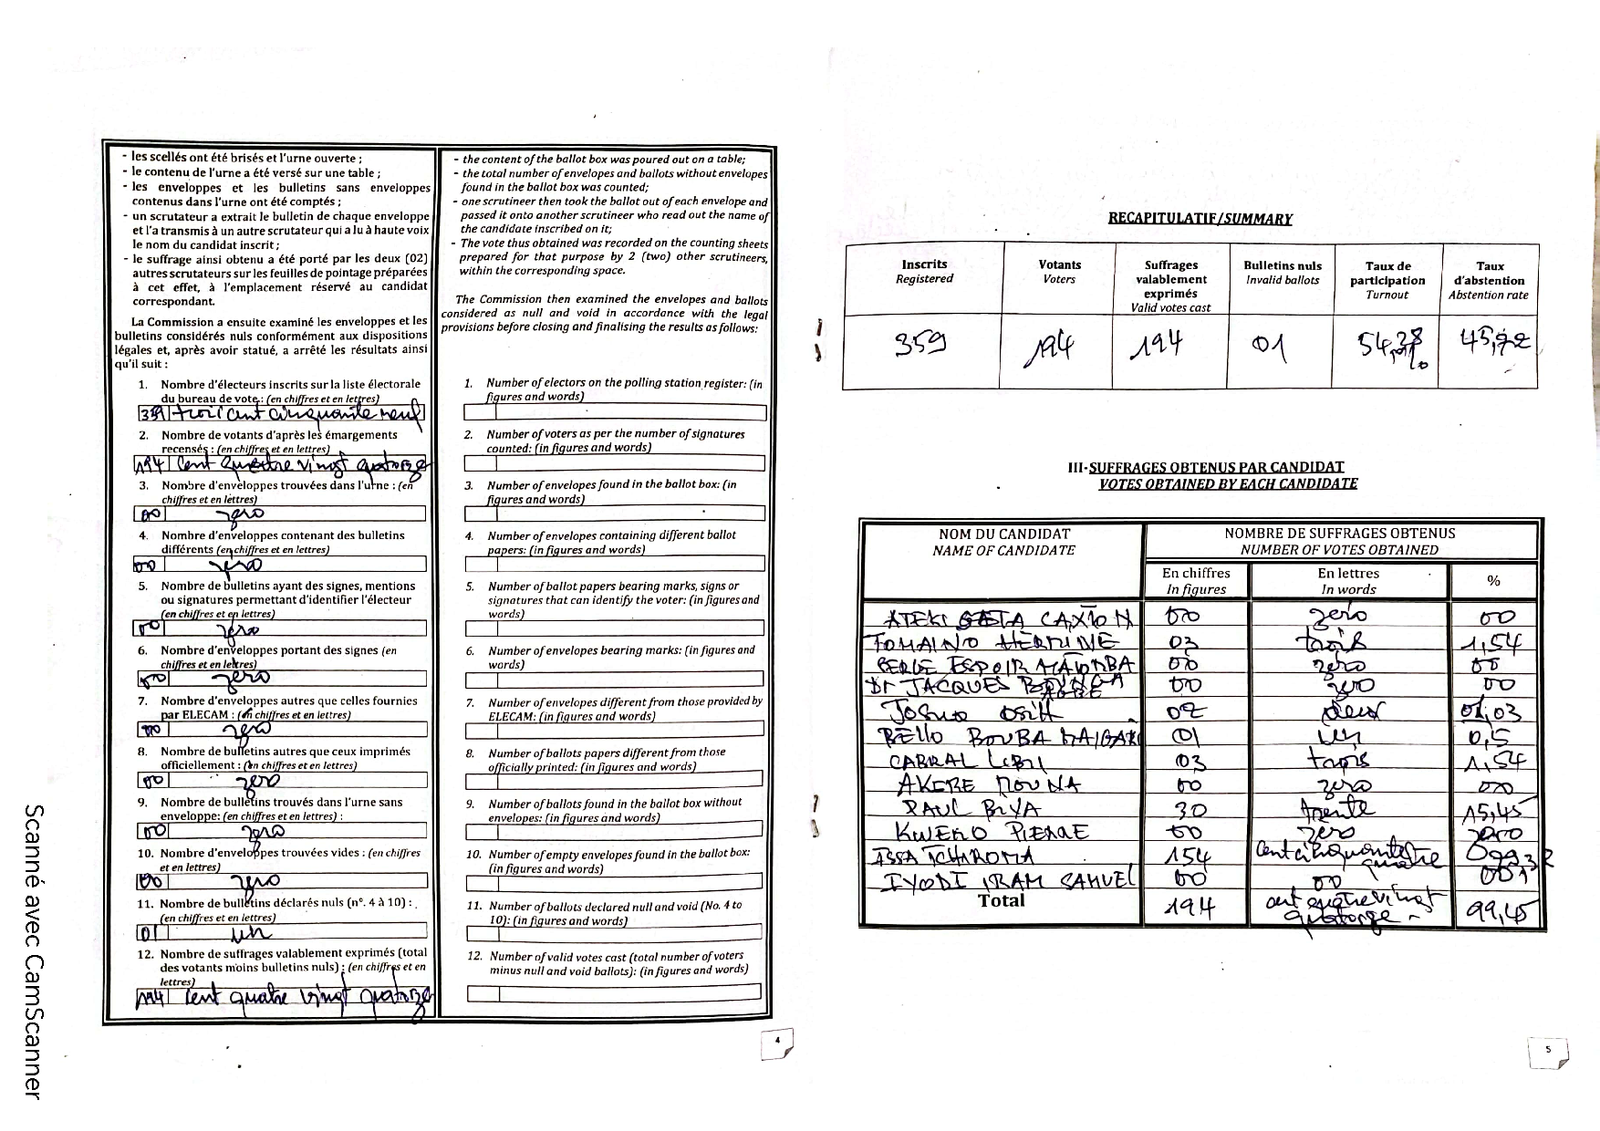 - les scellés ont été brisés et l'urne ouverte ;
- le contenu de l'urne a été versé sur une table ;
- les enveloppes et les bulletins sans enveloppes
contenus dans l'urne ont été comptés ;
- un scrutateur a extrait le bulletin de chaque enveloppe
et l'a transmis à un autre scrutateur qui a lu à haute voix
le nom du candidat inscrit ;
- le suffrage ainsi obtenu a été porté par les deux (02)
autres scrutateurs sur les feuilles de pointage préparées
à cet effet, à l'emplacement réservé au candidat
correspondant.
La Commission a ensuite examiné les enveloppes et les
bulletins considérés nuls conformément aux dispositions
légales et, après avoir statué, a arrêté les résultats ainsi
qu'il suit :
1. Nombre d'électeurs inscrits sur la liste électorale
du bureau de vote: (en chiffres et en lettres)
359 trois cent cinquante neuf
2. Nombre de votants d'après les émargements
recensés : (en chiffres et en lettres)
194 cent quatre vingt quatorze
3. Nombre d'enveloppes trouvées dans l'urne : (en
chiffres et en lettres)
00 zero
4. Nombre d'enveloppes contenant des bulletins
différents (en chiffres et en lettres)
00 zero
5. Nombre de bulletins ayant des signes, mentions
ou signatures permettant d'identifier l'électeur
(en chiffres et en lettres)
00 zero
6. Nombre d'enveloppes portant des signes (en
chiffres et en lettres)
00 zero
7. Nombre d'enveloppes autres que celles fournies
par ELECAM : (en chiffres et en lettres)
00 zero
8. Nombre de bulletins autres que ceux imprimés
officiellement : (en chiffres et en lettres)
00 zero
9. Nombre de bulletins trouvés dans l'urne sans
enveloppe: (en chiffres et en lettres) :
00 zero
10. Nombre d'enveloppes trouvées vides : (en chiffres
et en lettres)
00 zero
11. Nombre de bulletins déclarés nuls (n°. 4 à 10) :
(en chiffres et en lettres)
01 un
12. Nombre de suffrages valablement exprimés (total
des votants moins bulletins nuls) : (en chiffres et en
lettres)
194 cent quatre vingt quatorze
- the content of the ballot box was poured out on a table;
- the total number of envelopes and ballots without envelopes
found in the ballot box was counted;
- one scrutineer then took the ballot out of each envelope and
passed it onto another scrutineer who read out the name of
the candidate inscribed on it;
- The vote thus obtained was recorded on the counting sheets
prepared for that purpose by 2 (two) other scrutineers,
within the corresponding space.
The Commission then examined the envelopes and ballots
considered as null and void in accordance with the legal
provisions before closing and finalising the results as follows:
1. Number of electors on the polling station register: (in
figures and words)
2. Number of voters as per the number of signatures
counted: (in figures and words)
3. Number of envelopes found in the ballot box: (in
figures and words)
4. Number of envelopes containing different ballot
papers: (in figures and words)
5. Number of ballot papers bearing marks, signs or
signatures that can identify the voter: (in figures and
words)
6. Number of envelopes bearing marks: (in figures and
words)
7. Number of envelopes different from those provided by
ELECAM: (in figures and words)
8. Number of ballots papers different from those
officially printed: (in figures and words)
9. Number of ballots found in the ballot box without
envelopes: (in figures and words)
10. Number of empty envelopes found in the ballot box:
(in figures and words)
11. Number of ballots declared null and void (No. 4 to
10): (in figures and words)
12. Number of valid votes cast (total number of voters
minus null and void ballots): (in figures and words)
4
RECAPITULATIF/SUMMARY
Inscrits Votants Suffrages valablement exprimés Bulletins nuls Taux de participation Taux d'abstention
Registered Voters Valid votes cast Invalid ballots Turnout Abstention rate
359 194 194 01
III-SUFFRAGES OBTENUS PAR CANDIDAT
VOTES OBTAINED BY EACH CANDIDATE
NOM DU CANDIDAT NOMBRE DE SUFFRAGES OBTENUS
NAME OF CANDIDATE NUMBER OF VOTES OBTAINED
En chiffres En lettres %
In figures In words
ATEKI CAXTON 00 zéro 00
TOMAINO 03 trois 1,54
ESPOIR 00 zero 00
Dr JACQUES 00 zero 00
Josuo OSIH 02 deux 01,03
BELLO BOUBA MAIGARI 01 un 0,5
CABRAL LIBII 03 trois 1,54
AKERE MOUNA 00 zero 00
PAUL BIYA 30 trente 15,45
KWEMO PIERRE 00 zero zero
ISSA TCHIROMA 154 cent cinquante quatre
IYODI IRAM SAMUEL 00 00
Total 194 cent quatre vingt quatorze 99,45
5
Scanné avec CamScanner